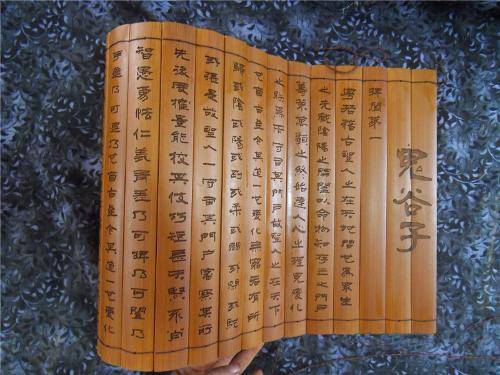 鬼谷子
捭闔第一
粵若稽古聖人之在天地間也為眾生
之先觀陰陽之開闔以命物知存亡之門戶
籌策萬類之終始達人心之理見變化
之朕焉而守司其門戶故聖人之在天下
也自古至今其道一也變化無窮各有所
歸或陰或陽或柔或剛或開或閉或弛
或張是故聖人一守司其門戶審察其所
先後度權量能校其伎巧短長夫賢不肖
智愚勇怯仁義有差乃可捭乃可闔乃
乃可也自古至今其道一也變化